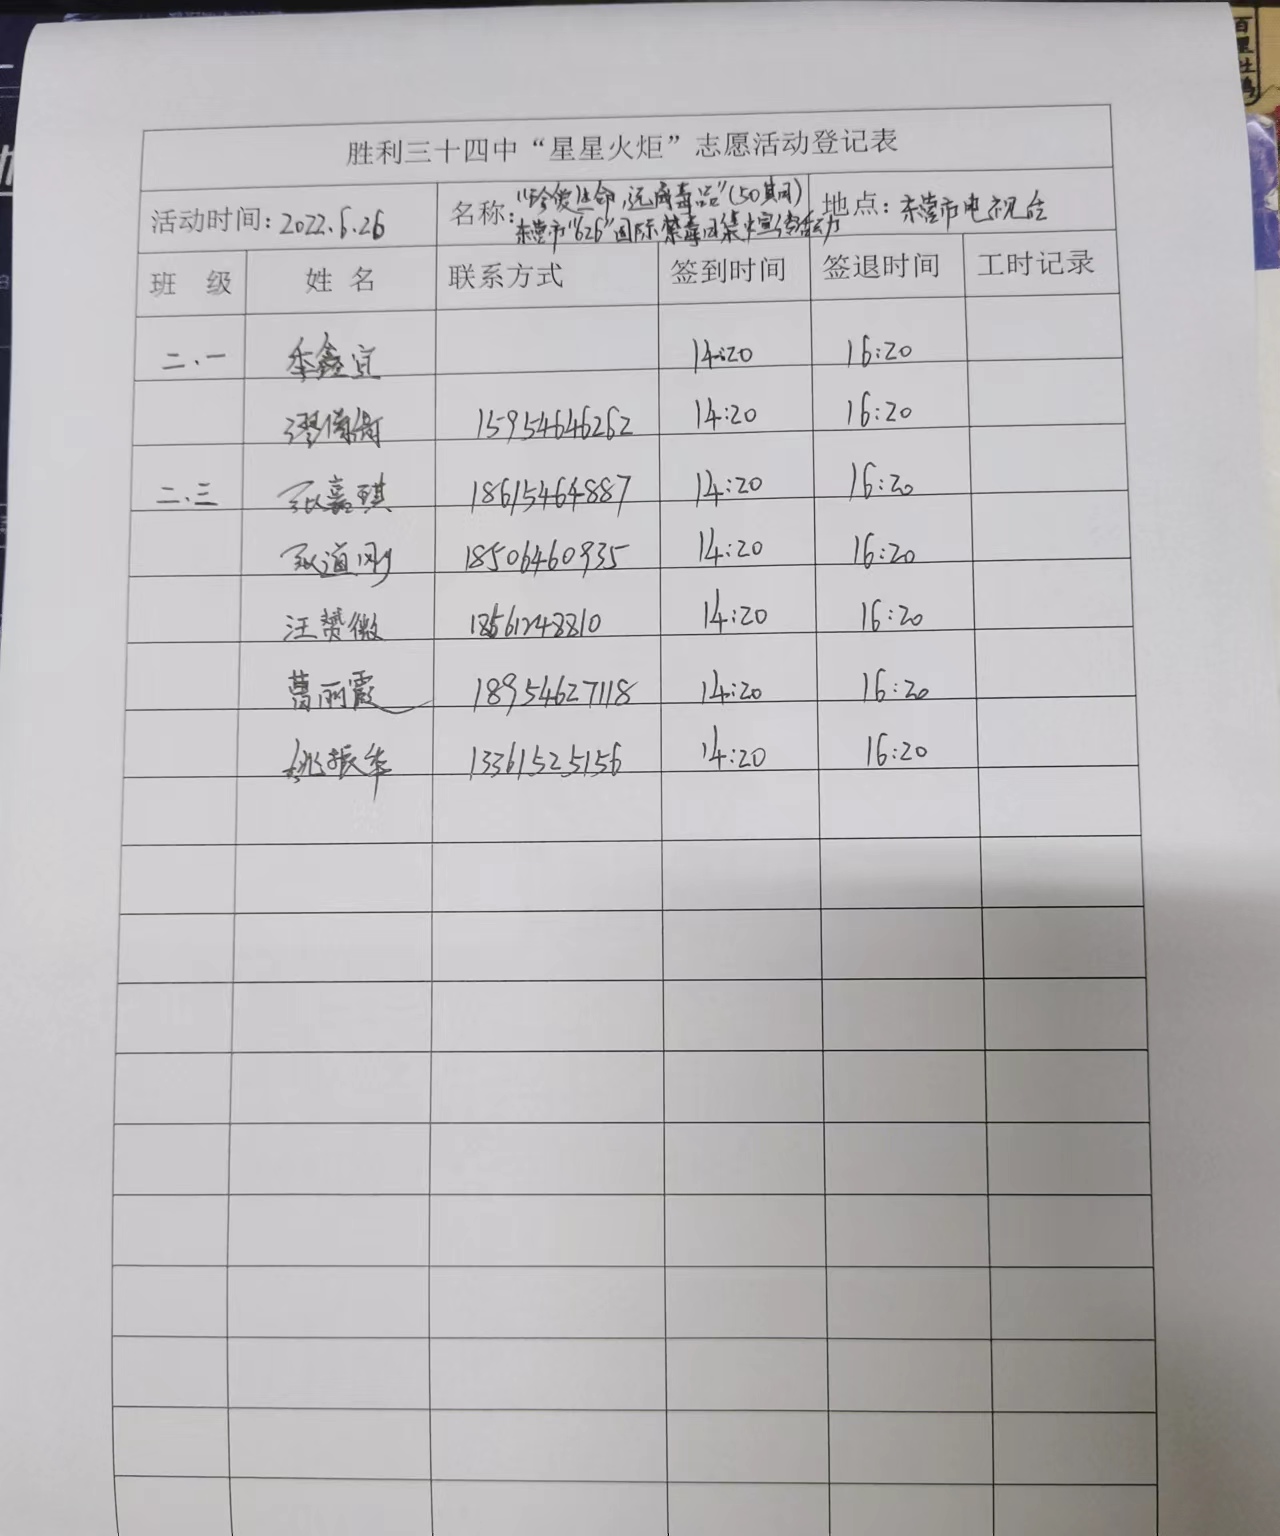 胜利三十四中“星星火炬”志愿活动登记表
活动时间：2022.6.26 名称：“珍爱生命，远离毒品”(50期) 地点：东营市电视台
东营市“626”国际禁毒日集中宣传活动
班 级 姓 名 联系方式 签到时间 签退时间 工时记录
二.一 李鑫宜 14:20 16:20
15954646262 14:20 16:20
二.三 张嘉琪 18615464887 14:20 16:20
张道刚 18506460935 14:20 16:20
汪赞微 18561248810 14:20 16:20
葛丽霞 18954627118 14:20 16:20
姚振华 13361525156 14:20 16:20